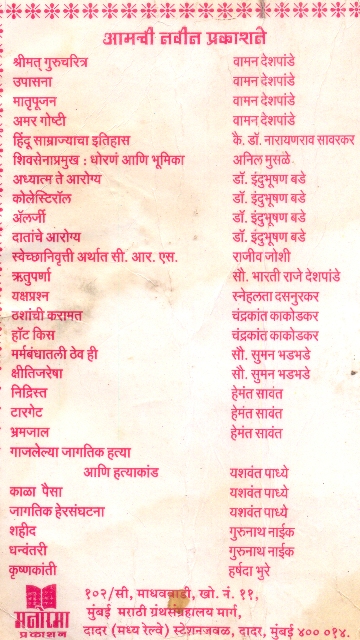 आमची नवीन प्रकाशने
श्रीमत् गुरुचरित्र वामन देशपांडे
उपासना वामन देशपांडे
मातृपूजन वामन देशपांडे
अमर गोष्टी वामन देशपांडे
हिंदू साम्राज्याचा इतिहास कै. डॉ. नारायणराव सावरकर
शिवसेनाप्रमुख : धोरणं आणि भूमिका अनिल मुसळे
अध्यात्म ते आरोग्य डॉ. इंदुभूषण बडे
कोलेस्टिरॉल डॉ. इंदुभूषण बडे
ॲलर्जी डॉ. इंदुभूषण बडे
दातांचे आरोग्य डॉ. इंदुभूषण बडे
स्वेच्छानिवृत्ती अर्थात सी. आर. एस. राजीव जोशी
ऋतुपर्णा सौ. भारती राजे देशपांडे
यक्षप्रश्न स्नेहलता दसनुरकर
ठशांची करामत चंद्रकांत काकोडकर
हॉट किस चंद्रकांत काकोडकर
मर्मबंधातली ठेव ही सौ. सुमन भडभडे
क्षीतिजरेषा सौ. सुमन भडभडे
निद्रिस्त हेमंत सावंत
टारगेट हेमंत सावंत
भ्रमजाल हेमंत सावंत
गाजलेल्या जागतिक हत्या
आणि हत्याकांड यशवंत पाध्ये
काळा पैसा यशवंत पाध्ये
जागतिक हेरसंघटना यशवंत पाध्ये
शहीद गुरुनाथ नाईक
धन्वंतरी गुरुनाथ नाईक
कृष्णकांती हर्षदा भुरे
मनोरमा
प्रकाशन
१०२/सी, माधववाडी, खो. नं. ११,
मुंबई मराठी ग्रंथसंग्रहालय मार्ग,
दादर (मध्य रेल्वे) स्टेशनजवळ, दादर, मुंबई ४०० ०१४.